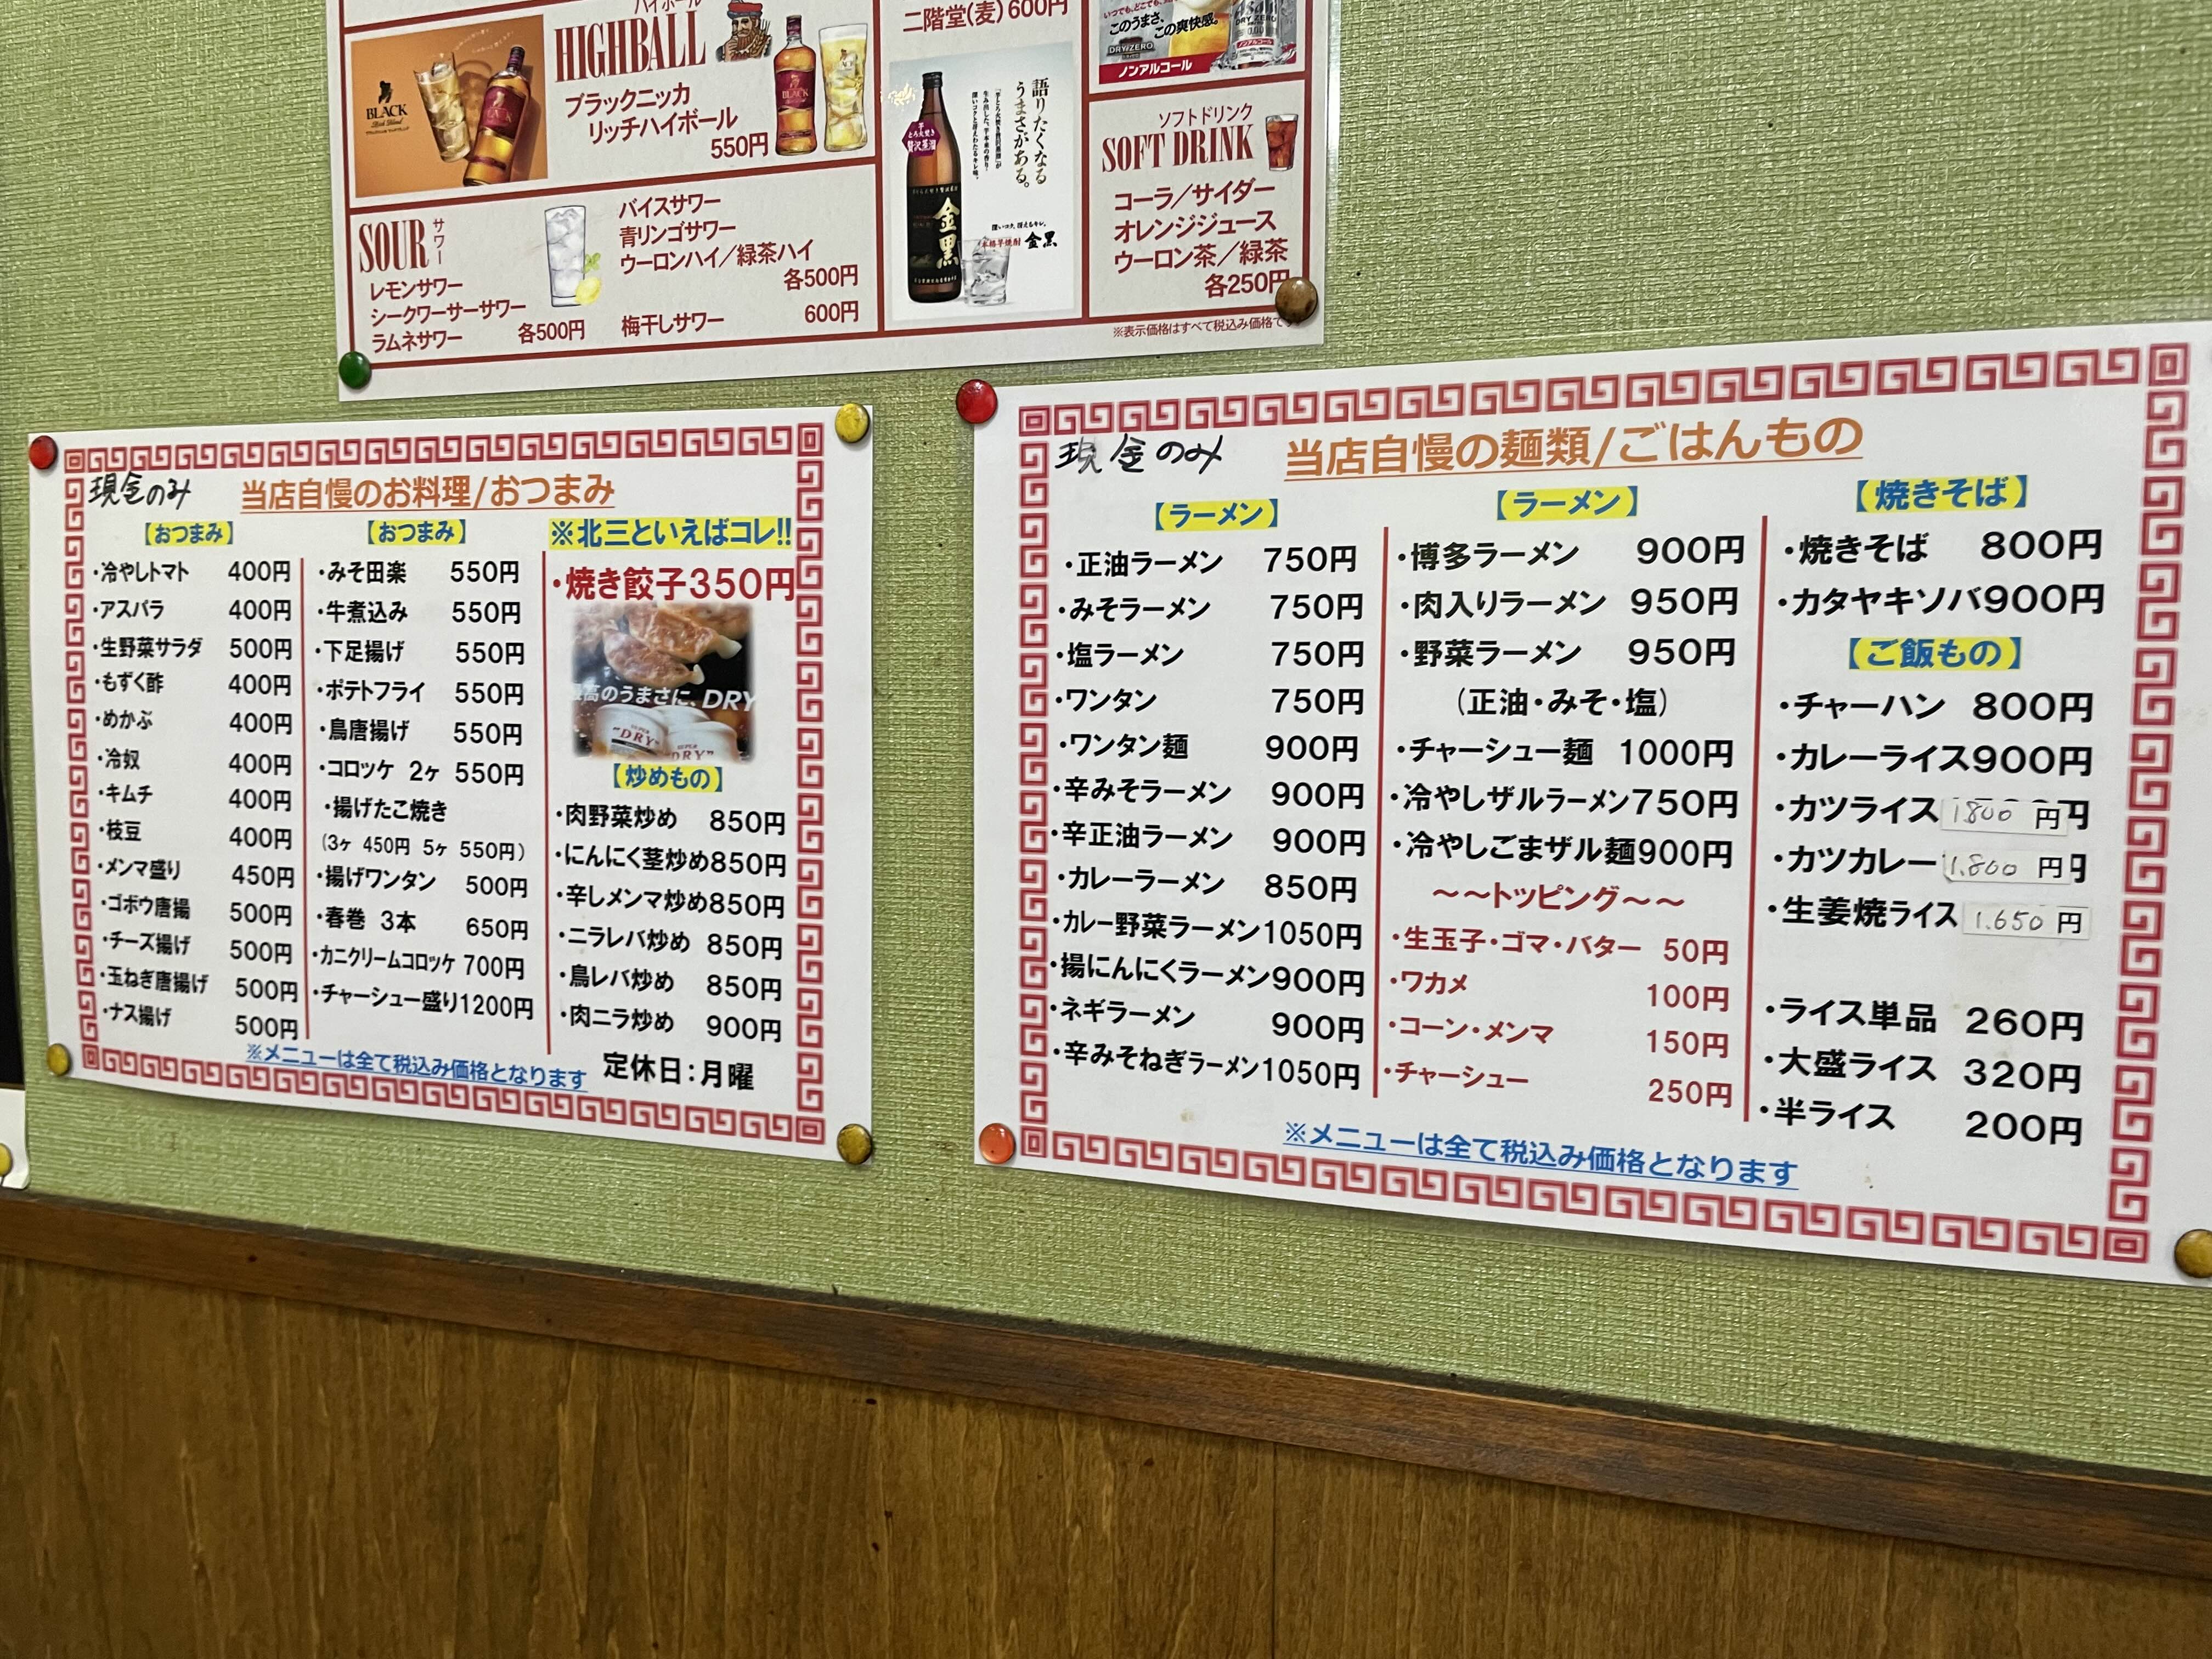 ハイボール
HIGHBALL
BLACK
ブラックニッカ
リッチハイボール
550円
SOUR
サワー
レモンサワー
シークワーサーサワー
ラムネサワー
各500円
バイスサワー
青リンゴサワー
ウーロンハイ/緑茶ハイ
各500円
梅干しサワー 600円
二階堂(麦)600円
語りたくなる
うまさがある。
贅沢蒸溜
金黒
本格芋焼酎 金黒
このうまさ、
この爽快感。
DRYZERO
ノンアルコール
ソフトドリンク
SOFT DRINK
コーラ/サイダー
オレンジジュース
ウーロン茶/緑茶
各250円
※表示価格はすべて税込み価格で
現金のみ
当店自慢のお料理/おつまみ
【おつまみ】
・冷やしトマト 400円
・アスパラ 400円
・生野菜サラダ 500円
・もずく酢 400円
・めかぶ 400円
・冷奴 400円
・キムチ 400円
・枝豆 400円
・メンマ盛り 450円
・ゴボウ唐揚 500円
・チーズ揚げ 500円
・玉ねぎ唐揚げ 500円
・ナス揚げ 500円
【おつまみ】
・みそ田楽 550円
・牛煮込み 550円
・下足揚げ 550円
・ポテトフライ 550円
・鳥唐揚げ 550円
・コロッケ 2ヶ 550円
・揚げたこ焼き
(3ヶ 450円 5ヶ 550円)
・揚げワンタン 500円
・春巻 3本 650円
・カニクリームコロッケ 700円
・チャーシュー盛り1200円
※北三といえばコレ!!
・焼き餃子350円
高のうまさに、DRY
"DRY"
【炒めもの】
・肉野菜炒め 850円
・にんにく茎炒め850円
・辛しメンマ炒め850円
・ニラレバ炒め 850円
・鳥レバ炒め 850円
・肉ニラ炒め 900円
※メニューは全て税込み価格となります
定休日：月曜
現金のみ
当店自慢の麺類/ごはんもの
【ラーメン】
・正油ラーメン 750円
・みそラーメン 750円
・塩ラーメン 750円
・ワンタン 750円
・ワンタン麺 900円
・辛みそラーメン 900円
・辛正油ラーメン 900円
・カレーラーメン 850円
・カレー野菜ラーメン1050円
・揚にんにくラーメン900円
・ネギラーメン 900円
・辛みそねぎラーメン1050円
【ラーメン】
・博多ラーメン 900円
・肉入りラーメン 950円
・野菜ラーメン 950円
(正油・みそ・塩)
・チャーシュー麺 1000円
・冷やしザルラーメン750円
・冷やしごまザル麺900円
～～トッピング～～
・生玉子・ゴマ・バター 50円
・ワカメ 100円
・コーン・メンマ 150円
・チャーシュー 250円
【焼きそば】
・焼きそば 800円
・カタヤキソバ900円
【ご飯もの】
・チャーハン 800円
・カレーライス900円
・カツライス 1.800 円
・カツカレー 1.800 円
・生姜焼ライス 1.650 円
・ライス単品 260円
・大盛ライス 320円
・半ライス 200円
※メニューは全て税込み価格となります